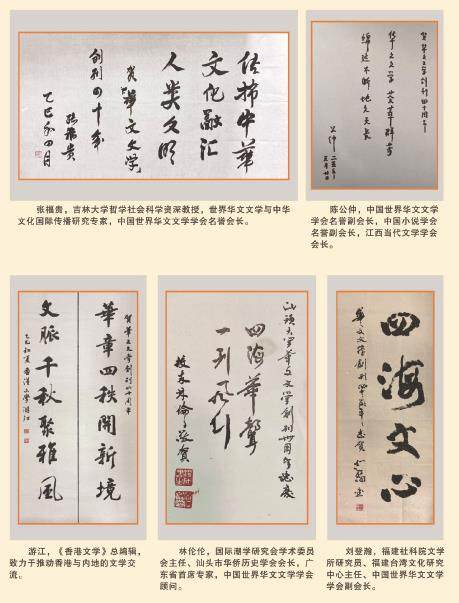 传播中華
文化融汇
人类文明
贺華文文学
创刊四十年
张福贵
乙巳年四月
张福贵，吉林大学哲学社会科学资深教授，世界华文文学与中华
文化国际传播研究专家，中国世界华文文学学会名誉会长。
華文文学
绵延不断 地久天长
公仲
陈公仲，中国世界华文文学
学会名誉副会长，中国小说学会
名誉副会长，江西当代文学学会
会长。
賀華文文學創刊四十周年
華章四秩開新境
文脈千秋聚雅風
乙巳初夏香港文學游江
游江，《香港文学》总编辑，
致力于推动香港与内地的文学交
流。
汕頭大學華文文學創刊卌周年誌慶
四海華聲
一刊風行
校友林倫倫敬賀
林伦伦，国际潮学研究会学术委员
会主任、汕头市华侨历史学会会长，广
东省首席专家，中国世界华文文学学会
顾问。
四海文心
華文文學創刊四十周年志贺
刘登瀚，福建社科院文学
所研究员、福建台湾文化研究
中心主任、中国世界华文文学
学会副会长。